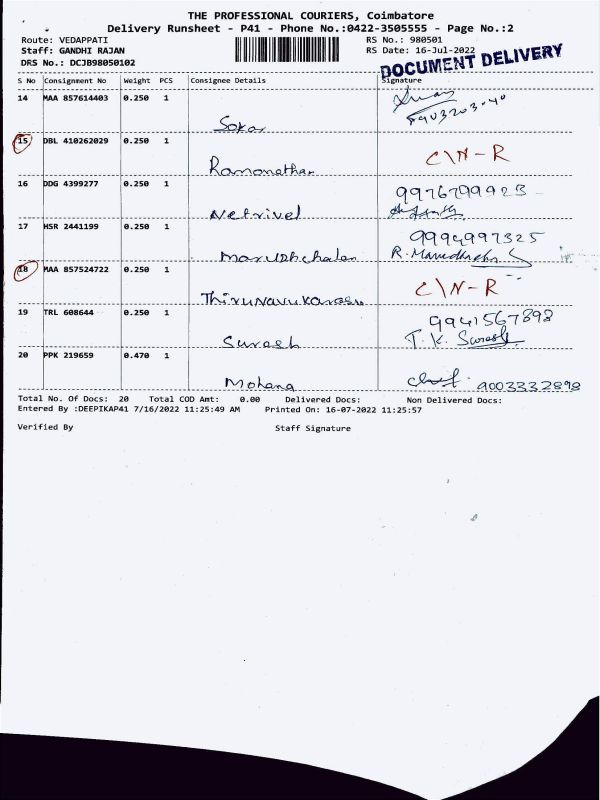 THE PROFESSIONAL COURIERS, Coimbatore
Delivery Runsheet - P41 - Phone No.:0422-3505555 - Page No.:2
Route: VEDAPPATI RS No.: 980501
Staff: GANDHI RAJAN RS Date: 16-Jul-2022
DRS No.: DCJB98050102
DOCUMENT DELIVERY
S No Consignment No Weight PCS Consignee Details Signature
14 MAA 857614403 0.250 1
Sokar
15 DBL 410262029 0.250 1 C\N-R
Ramanathan
16 DDG 4399277 0.250 1 9976799923
Netrivel
17 HSR 2441199 0.250 1 9994997325
Marudhchalan
18 MAA 857524722 0.250 1 C\N-R
Thirunavukarasu
19 TRL 608644 0.250 1 9941567898
Suresh T. K. Suresh
20 PPK 219659 0.470 1
Mohana 9003332898
Total No. Of Docs: 20 Total COD Amt: 0.00 Delivered Docs: Non Delivered Docs:
Entered By :DEEPIKAP41 7/16/2022 11:25:49 AM Printed On: 16-07-2022 11:25:57
Verified By Staff Signature